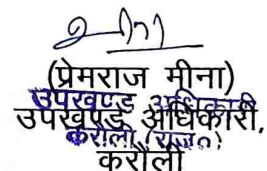 (प्रेमराज मीना)
उपखण्ड अधिकारी
उपखण्ड अधिकारी,
करौली (राज०)
करौली